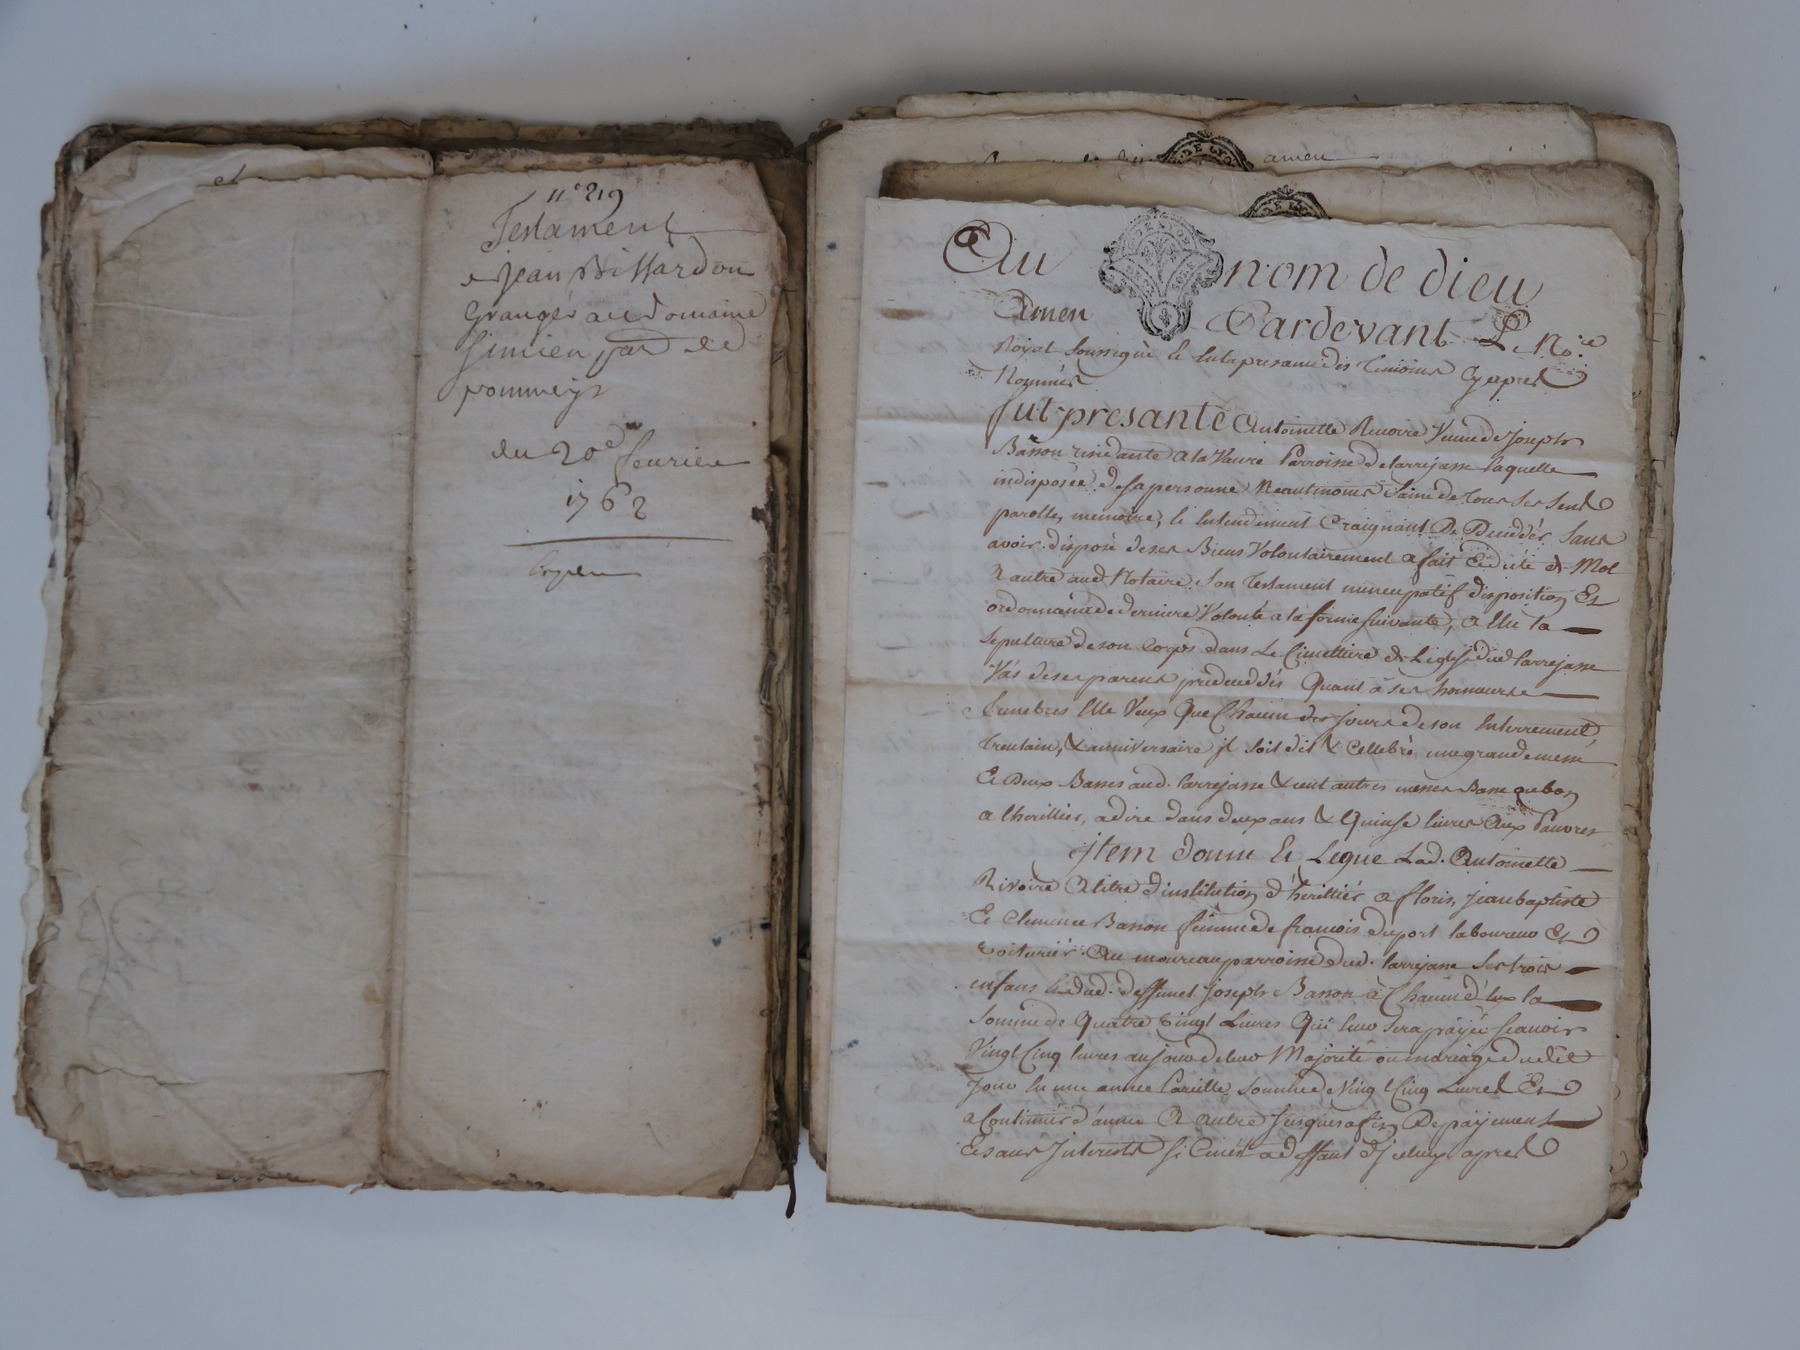 n.° 219
Testament
Jean Bissardon
Granger au Domaine
Simien par de
pommeys
du 20e feurier
1762
amen
Au nom de dieu
Amen Pardevant Le No.re
Royal soussigné & En la presance des Temoins Cy apres
Nommés
fut presante Antoinette Riuoire Veuue de Joseph
Basson residante a la Vaure Parroisse de larrejasse laquelle
indisposée de sa personne Neautmoins Saine de tous ses sens
parolle, memoire, & Entendement Craignant De Deceddér Sans
avoir disposé de ses Biens Volontairement a fait & dicté de Mot
a autre aud Notaire Son Testament nuncupatif disposition Et
ordonnance de derniere Volonté a la forme suivante, a Elu la
sepulture de son Corps dans Le Cimettiere de L'eglise dud Larrejasse
Vas de ses parens predeceddés Quant a ses honneurs
funebres Elle Veux Que Chacun des jours de son Enterrement
Trentain, & anniversaire jl soit dit & Cellebré une grande messe
Et Deux Basses aud. Larrejasse & cent autres messes Basse
a lheritier, a dire dans deux ans & Quinse livres Aux Pauvres
jtem donne Et Legue Lad. Antoinette
Rivoire A titre d'institution d'herittiér a floris, jean baptiste
Et Clemence Basson femme de francois duport laboureur Et
Voiturier Au moureau parroisse dud. Larrejasse Ses trois
enfans & dud. deffunct Joseph Basson a Chacun d'Eux la
Somme de Quatre Vingt Livres Qui leur sera payée scauoir
Vingt Cinq livres au jour de leur Majorité ou mariage dudit
Jour En une année Pareille Somme de Vingt Cinq Livres Et
a Continuér d'année A autre jusques a fin De payement
Et sans Interests si Ce n'est a deffaut d'jceluy apres